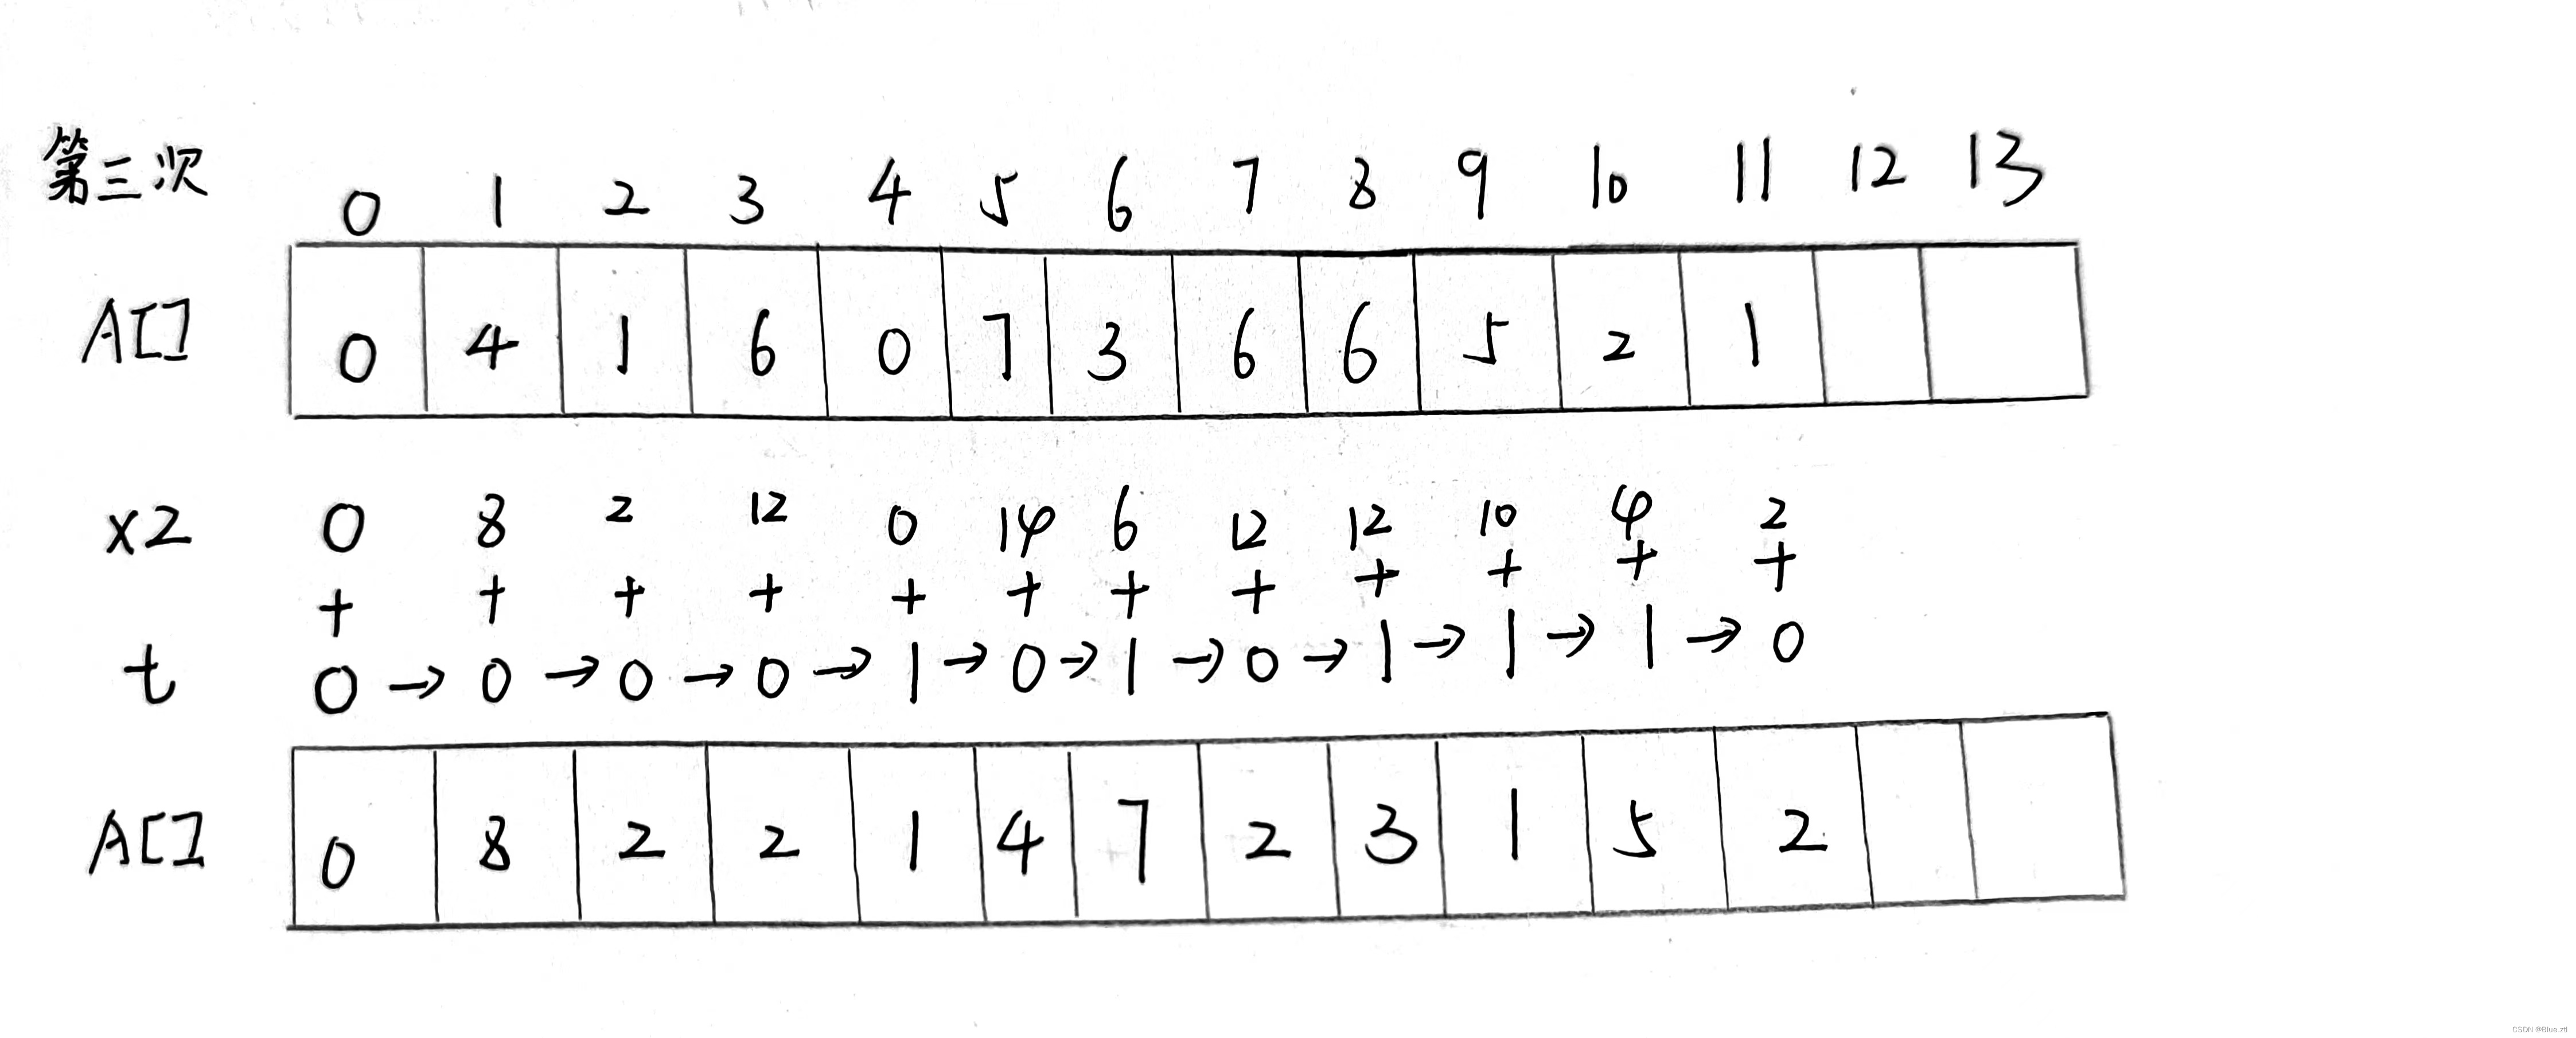 第三次 0 1 2 3 4 5 6 7 8 9 10 11 12 13
A[] 0 4 1 6 0 7 3 6 6 5 2 1
x2 0 8 2 12 0 14 6 12 12 10 4 2
+ + + + + + + + + + + +
t 0 → 0 → 0 → 0 → 1 → 0 → 1 → 0 → 1 → 1 → 1 → 0
A[] 0 8 2 2 1 4 7 2 3 1 5 2
CSDN @Blue.ztl